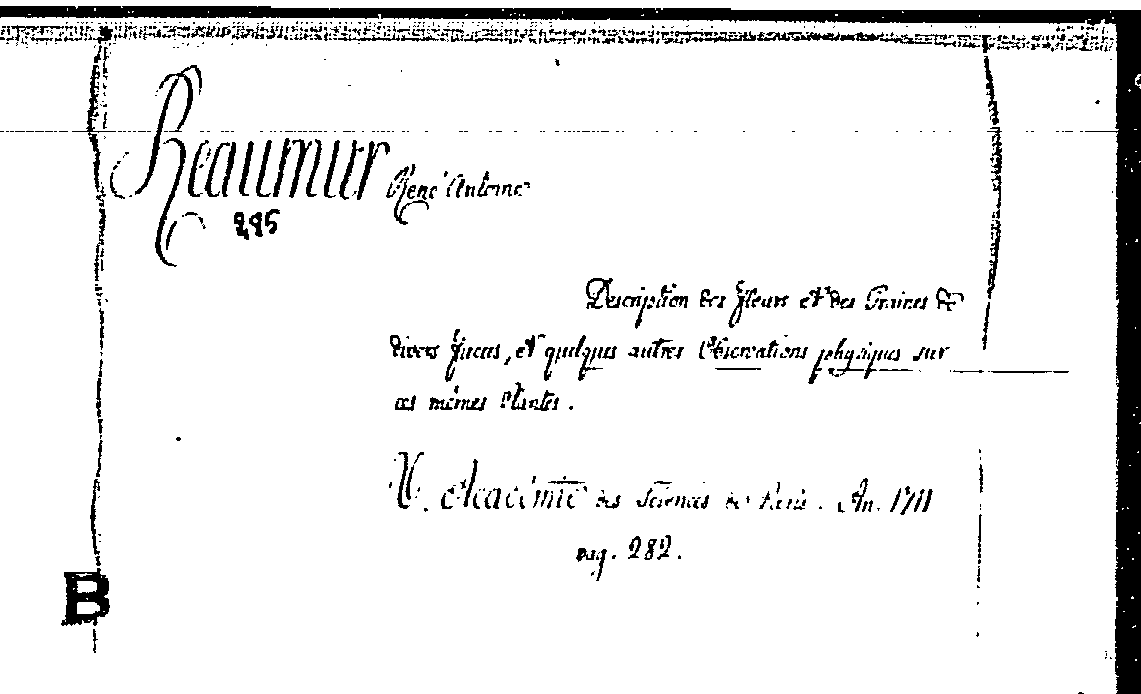 Reaumur René Antoine
Description des Fleurs et des Graines de
divers Fucus, et quelques autres Observations physiques sur
ces mêmes Plantes.
V. Académie des Sciences de Paris. An. 1711
pag. 282.
B